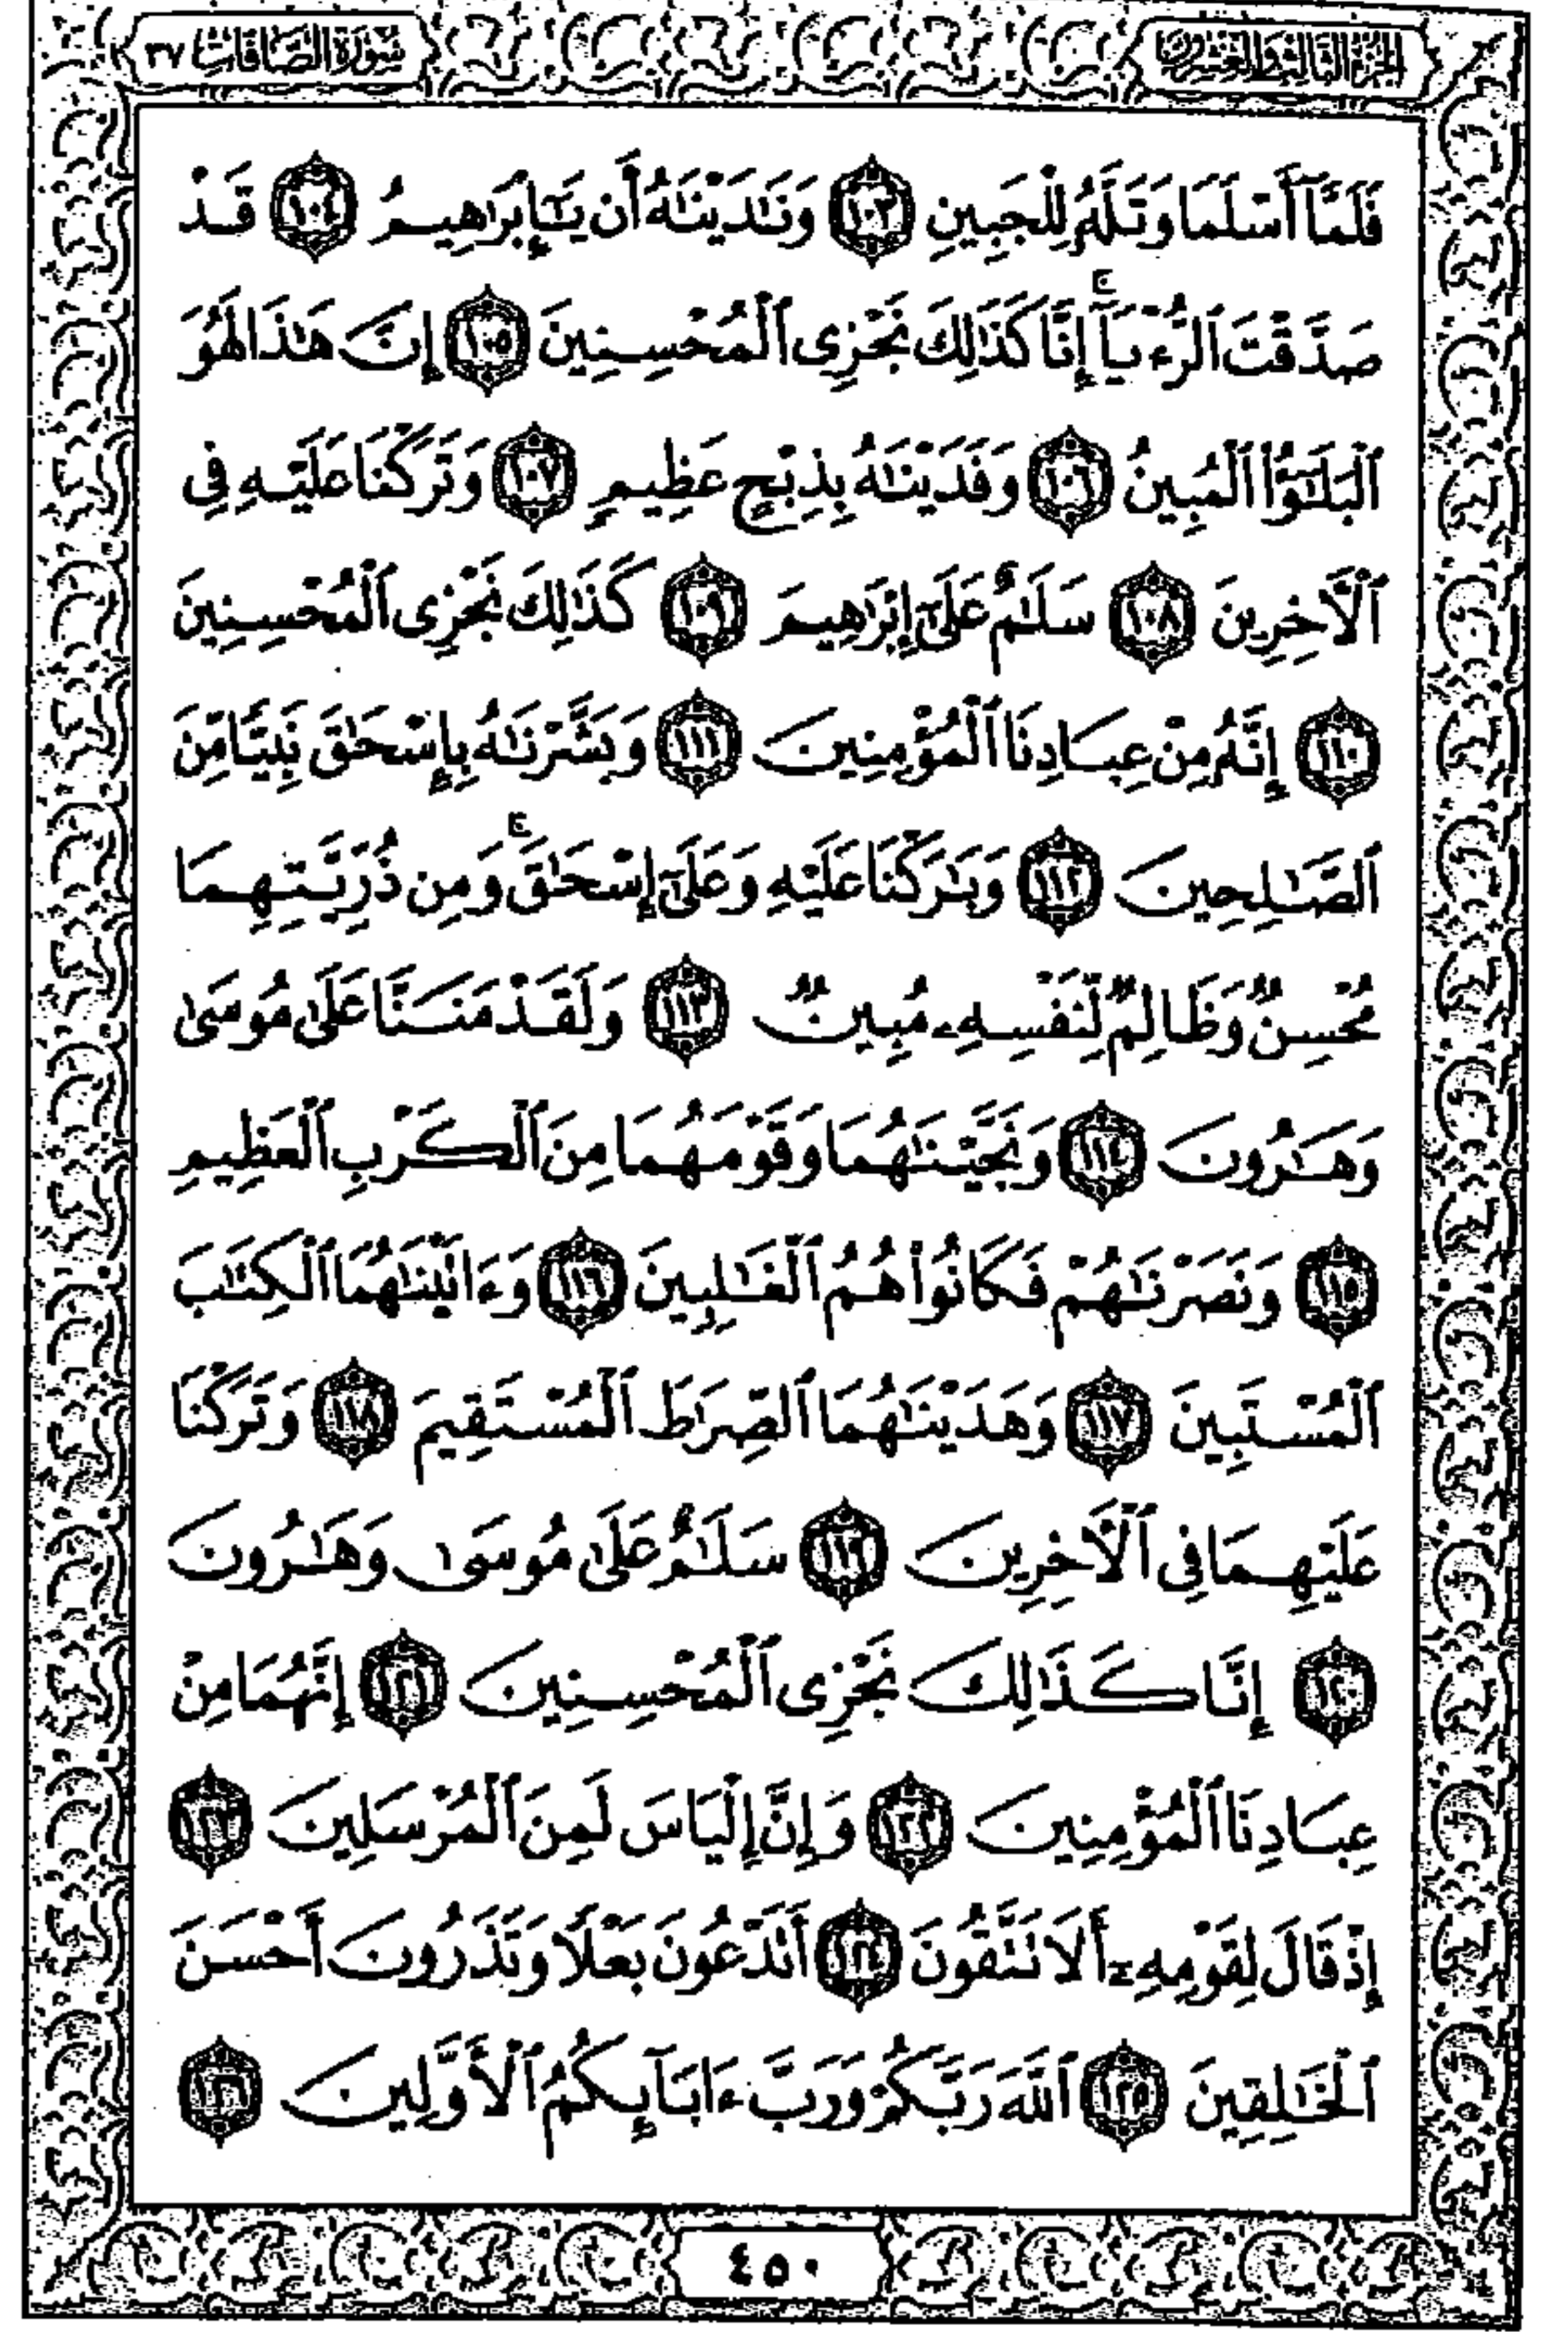 الجزء الثالث والعشرون
سورة الصافات ٣٧
فَلَمَّآ أَسْلَمَا وَتَلَّهُۥ لِلْجَبِينِ ١٠٣ وَنَٰدَيْنَٰهُ أَن يَٰٓإِبْرَٰهِيمُ ١٠٤ قَدْ
صَدَّقْتَ ٱلرُّءْيَآۚ إِنَّا كَذَٰلِكَ نَجْزِى ٱلْمُحْسِنِينَ ١٠٥ إِنَّ هَٰذَا لَهُوَ
ٱلْبَلَٰٓؤُا۟ ٱلْمُبِينُ ١٠٦ وَفَدَيْنَٰهُ بِذِبْحٍ عَظِيمٍ ١٠٧ وَتَرَكْنَا عَلَيْهِ فِى
ٱلْءَاخِرِينَ ١٠٨ سَلَٰمٌ عَلَىٰٓ إِبْرَٰهِيمَ ١٠٩ كَذَٰلِكَ نَجْزِى ٱلْمُحْسِنِينَ
١١٠ إِنَّهُۥ مِنْ عِبَادِنَا ٱلْمُؤْمِنِينَ ١١١ وَبَشَّرْنَٰهُ بِإِسْحَٰقَ نَبِيًّا مِّنَ
ٱلصَّٰلِحِينَ ١١٢ وَبَٰرَكْنَا عَلَيْهِ وَعَلَىٰٓ إِسْحَٰقَۚ وَمِن ذُرِّيَّتِهِمَا
مُحْسِنٌ وَظَالِمٌ لِّنَفْسِهِۦ مُبِينٌ ١١٣ وَلَقَدْ مَنَنَّا عَلَىٰ مُوسَىٰ
وَهَٰرُونَ ١١٤ وَنَجَّيْنَٰهُمَا وَقَوْمَهُمَا مِنَ ٱلْكَرْبِ ٱلْعَظِيمِ
١١٥ وَنَصَرْنَٰهُمْ فَكَانُوا۟ هُمُ ٱلْغَٰلِبِينَ ١١٦ وَءَاتَيْنَٰهُمَا ٱلْكِتَٰبَ
ٱلْمُسْتَبِينَ ١١٧ وَهَدَيْنَٰهُمَا ٱلصِّرَٰطَ ٱلْمُسْتَقِيمَ ١١٨ وَتَرَكْنَا
عَلَيْهِمَا فِى ٱلْءَاخِرِينَ ١١٩ سَلَٰمٌ عَلَىٰ مُوسَىٰ وَهَٰرُونَ
١٢٠ إِنَّا كَذَٰلِكَ نَجْزِى ٱلْمُحْسِنِينَ ١٢١ إِنَّهُمَا مِنْ
عِبَادِنَا ٱلْمُؤْمِنِينَ ١٢٢ وَإِنَّ إِلْيَاسَ لَمِنَ ٱلْمُرْسَلِينَ ١٢٣
إِذْ قَالَ لِقَوْمِهِۦٓ أَلَا تَتَّقُونَ ١٢٤ أَتَدْعُونَ بَعْلًا وَتَذَرُونَ أَحْسَنَ
ٱلْخَٰلِقِينَ ١٢٥ ٱللَّهَ رَبَّكُمْ وَرَبَّ ءَابَآئِكُمُ ٱلْأَوَّلِينَ ١٢٦
٤٥٠